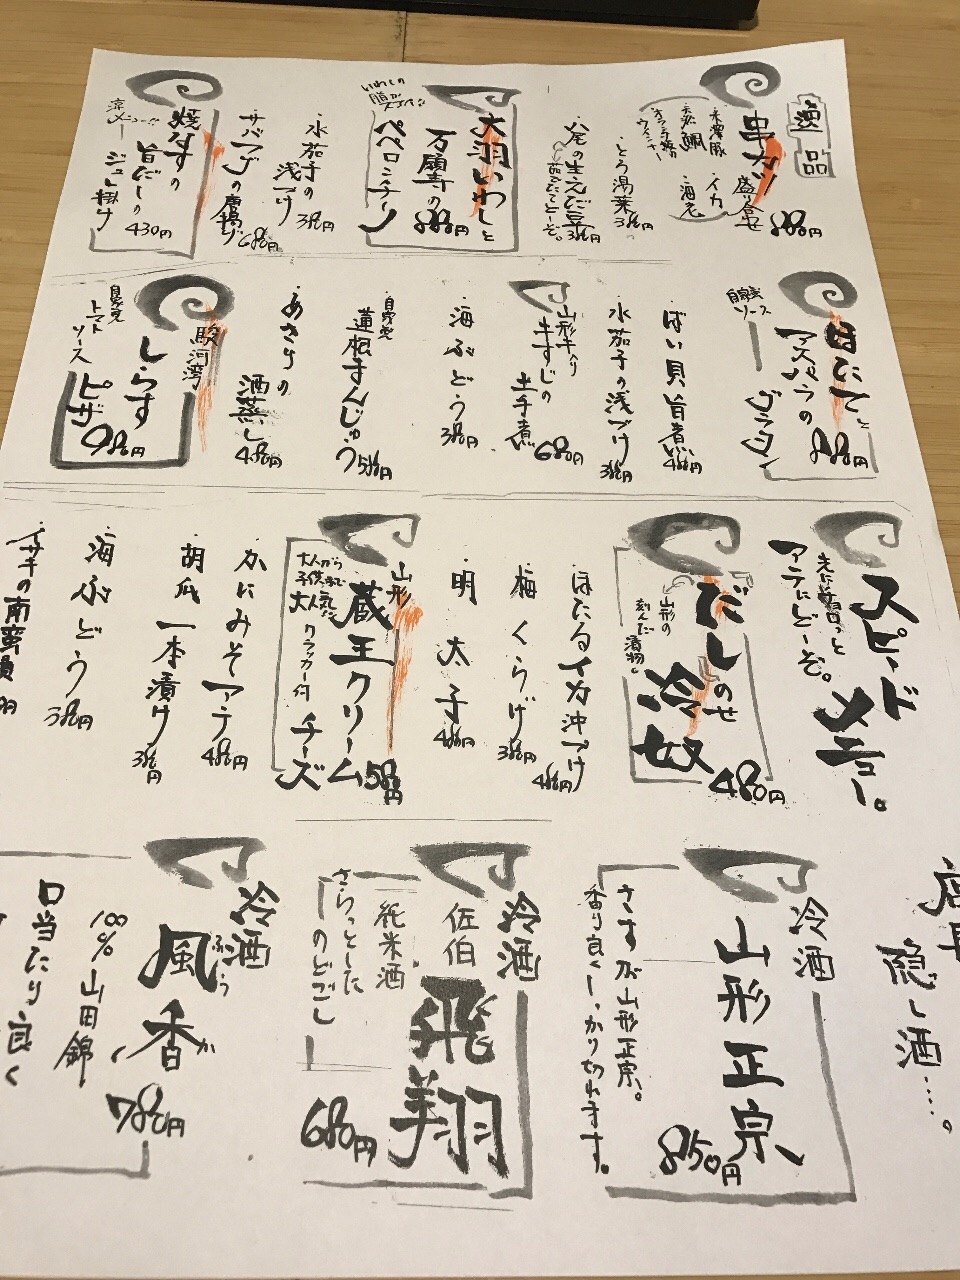 逸品
串カツ
盛り合せ
880円
米澤豚
イカ
鯛
海老
ウインナー
とろ湯葉
380円
八尾の生えだ豆
380円
茹でたてどーぞ。
大羽いわしと
万願寺の
ペペロンチーノ
880円
いわしの
水茄子の
浅づけ
380円
サバフグの唐揚げ
680円
焼なすの
旨だしの
ジュレ掛け
430円
ほたてと
アスパラの
グラタン
880円
自家製
ソース
ばい貝旨煮
480円
水茄子の浅づけ
380円
山形牛入り
牛すじの
土手煮
680円
海ぶどう
380円
自家製
蓮根まんじゅう
580円
あさりの
酒蒸し
480円
駿河湾
しらす
ピザ
980円
自家製
トマト
ソース
スピードメニュー。
アテにどーぞ。
だしのせ
冷奴
480円
山形の
刻んだ
漬物。
ほたるイカ沖づけ
480円
梅くらげ
380円
明太子
480円
山形
蔵王クリーム
チーズ
580円
大人から
子供まで
大人気だ
クラッカー付
かにみそアテ
480円
胡瓜一本漬け
380円
海ぶどう
380円
イサキの南蛮漬
店長
隠し酒‥‥。
冷酒
山形正宗
850円
さすが山形正宗。
香り良く、しっかり切れます。
冷酒
佐伯
飛翔
680円
純米酒
さらっとした
のどごし
冷酒
風香
ふうか
780円
100%山田錦
口当たり良く